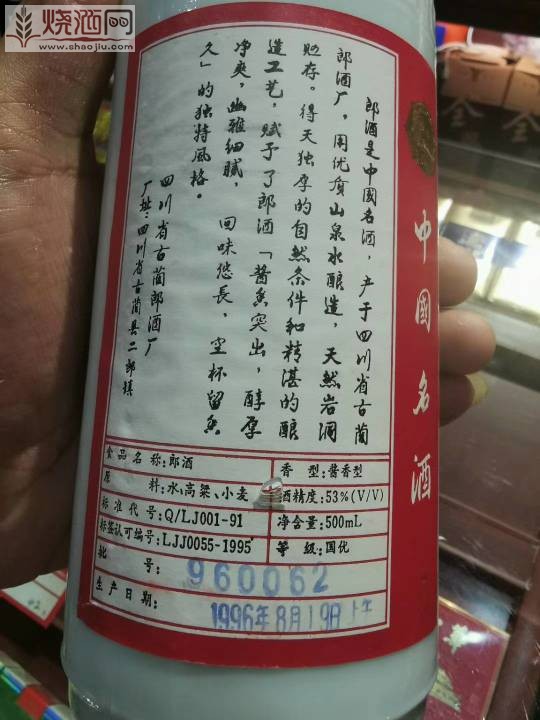 烧酒网
www.shaojiu.com
中國名酒
郎酒是中國名酒，产于四川省古蔺
郎酒厂，用优质山泉水酿造，天然岩洞
贮存。得天独厚的自然条件和精湛的酿
造工艺，赋予了郎酒「酱香突出，醇厚
净爽，幽雅细腻，回味悠長，空杯留香
久」的独特風格。
四川省古蔺郎酒厂
厂址：四川省古蔺县二郎镇
食品名称:郎酒
香型:酱香型
原料:水、高粱、小麦
酒精度:53%(V/V)
标准代号:Q/LJ001-91
净含量:500mL
标签认可编号:LJJ0055-1995
等级:国优
批号:960062
生产日期:1996年8月19日上午